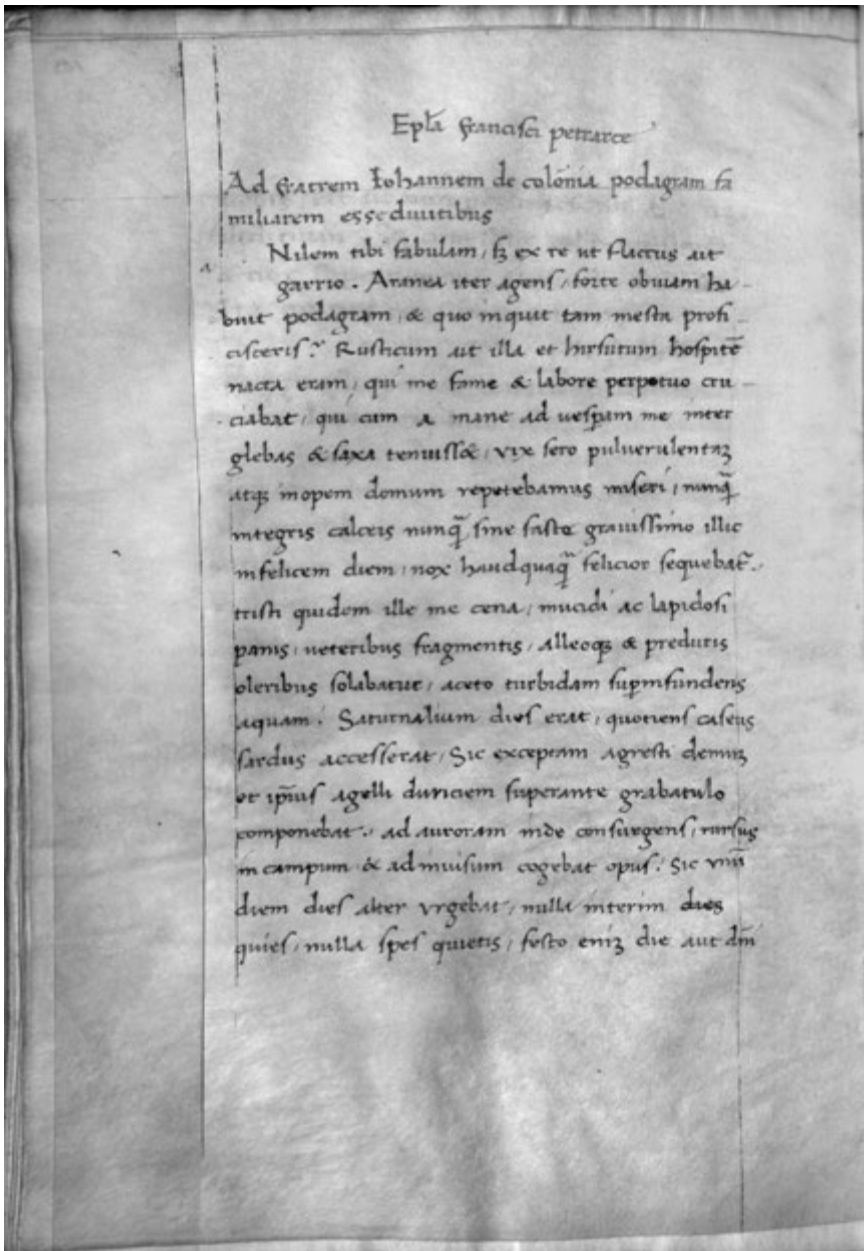 Epl̄a francisci petrarce
Ad fratrem Iohannem de colōnia podagram fa
miliarem esse divitibus
Nilem tibi fabulam, sꝫ ex re ut flaccus ait
garrio. Aranea iter agens, forte obuiam ha-
buit podagram, & quo inquit tam mesta profi-
cisceris? Rusticum ait illa et hirsutum hospitē
nacta eram, qui me fame & labore perpetuo cru-
ciabat, qui cum a mane ad uesꝑam me inter
glebas & saxa tenuiss&, vix sero pulverulentaꝫ
atqꝫ inopem domum repetebamus miseri, nunq̄
integris calceis nunq̄ sine fasce grauissimo illic
infelicem diem, nox haudquaq̄ felicior sequebat᷑.
tristi quidem ille me cena, mucidi ac lapidosi
panis, ueteribus fragmentis, alleoqꝫ & preduris
oleribus solabatur, aceto turbidam suꝑinfundens
aquam. Saturnalium dies erat, quotiens caseus
sardus accesserat, Sic exceptam agresti demuꝫ
et ip̄ius agelli duriciem superante grabatulo
componebat., ad auroram inde consurgens, rursus
in campum & ad inuisum cogebat opus. Sic vnū
diem dies alter vrgebat, nulla interim dies
quies, nulla spes quietis, festo eniꝫ die aut dn̄i